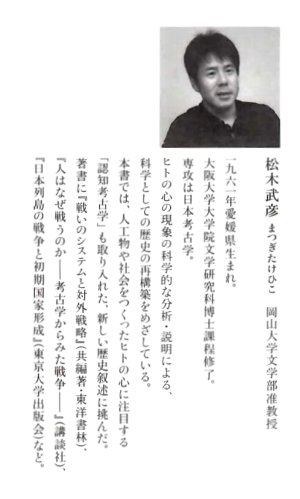 松木武彦 まつぎたけひこ 岡山大学文学部准教授
一九六一年愛媛県生まれ。
大阪大学大学院文学研究科博士課程修了。
専攻は日本考古学。
ヒトの心の現象の科学的な分析・説明による、
科学としての歴史の再構築をめざしている。
本書では、人工物や社会をつくったヒトの心に注目する
「認知考古学」も取り入れた、新しい歴史叙述に挑んだ。
著書に『戦いのシステムと対外戦略』(共編著・東洋書林)、
『人はなぜ戦うのか――考古学からみた戦争――』(講談社)、
『日本列島の戦争と初期国家形成』(東京大学出版会)など。